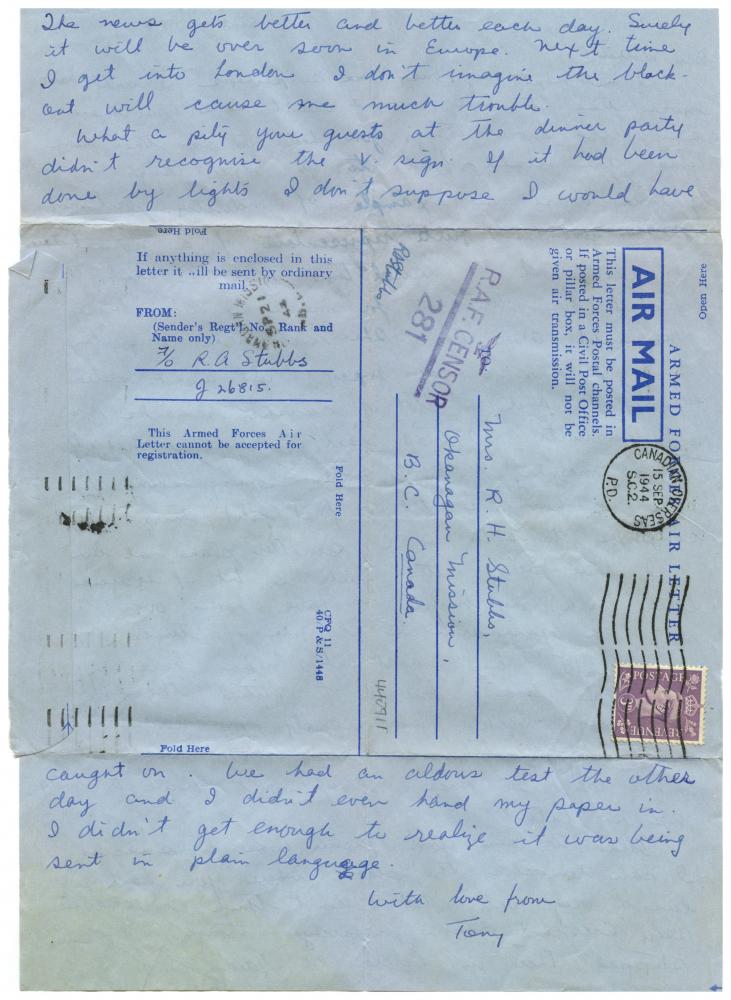 The news gets better and better each day. Surely
it will be over soon in Europe. Next time
I get into London I don't imagine the black-
out will cause me much trouble.
What a pity your guests at the dinner party
didn't recognise the V. sign. If it had been
done by lights I don't suppose I would have
Fold Here
If anything is enclosed in this
letter it ..ill be sent by ordinary
mail.
FROM:
(Sender's Regt'l No., Rank and
Name only)
F/O R. A Stubbs
J 26815.
This Armed Forces Air
Letter cannot be accepted for
registration.
Fold Here
CFQ 11
40/P & S/1448
Fold Here
Open Here
ARMED FORCES AIR LETTER
AIR MAIL
This letter must be posted in
Armed Forces Postal channels.
If posted in a Civil Post Office
or pillar box, it will not be
given air transmission.
CANADIAN OVERSEAS
15 SEP
1944
S.C.2.
P.D.
POSTAGE
REVENUE
R.A.F. CENSOR
281
RAStubbs
TO:
Mrs. R. H. Stubbs,
Okanagan Mission,
B.C. Canada.
caught on. We had an aldous test the other
day and I didn't even hand my paper in.
I didn't get enough to realize it was being
sent in plain language.
With love from
Tony